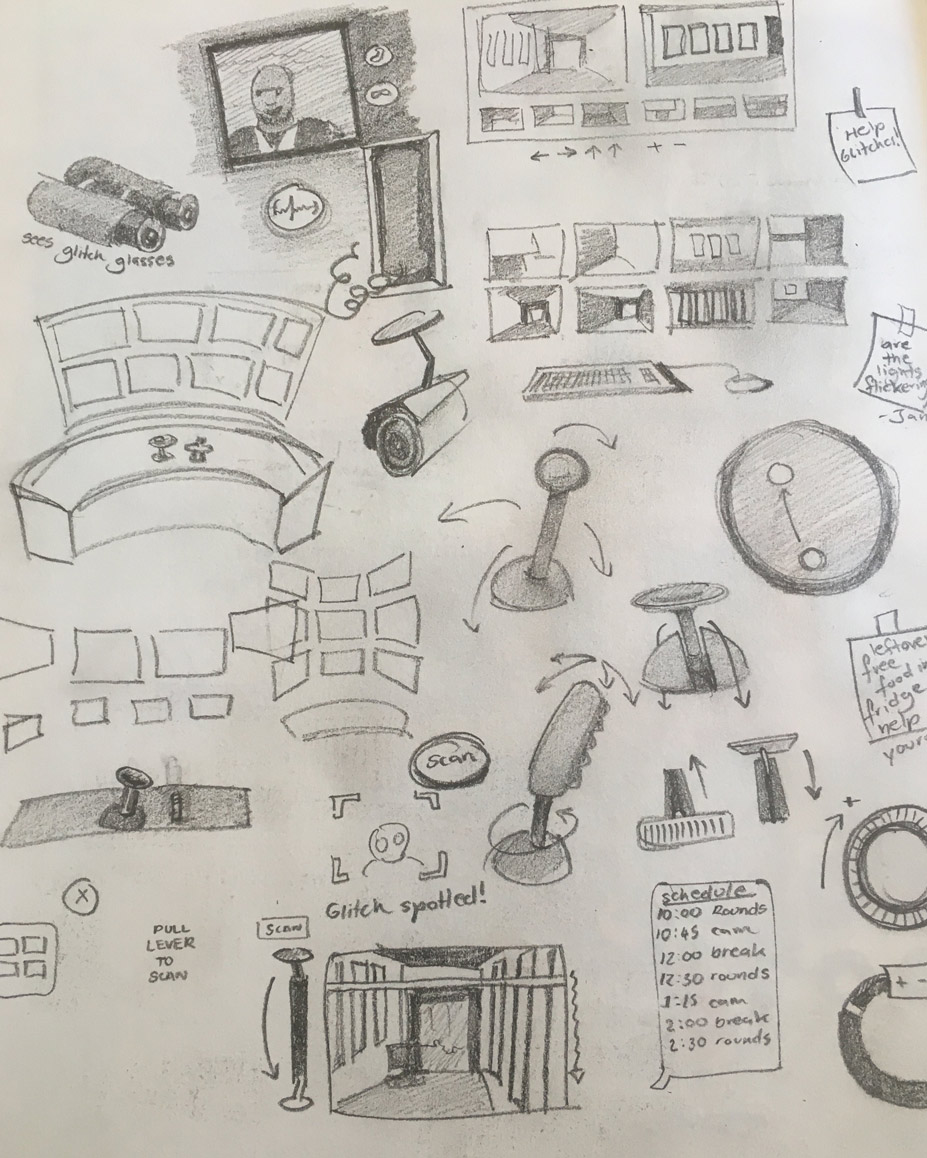 Help
Glitches!
sees glitch glasses
are
the
lights
flickering
-Jan
leftover
free
food in
fridge
help
your
Scan
Glitch spotted!
PULL
LEVER
TO
SCAN
SCAN
schedule
10:00 Rounds
10:45 cam
12:00 break
12:30 rounds
1:15 cam
2:00 break
2:30 rounds
+ -
+
+ -
X